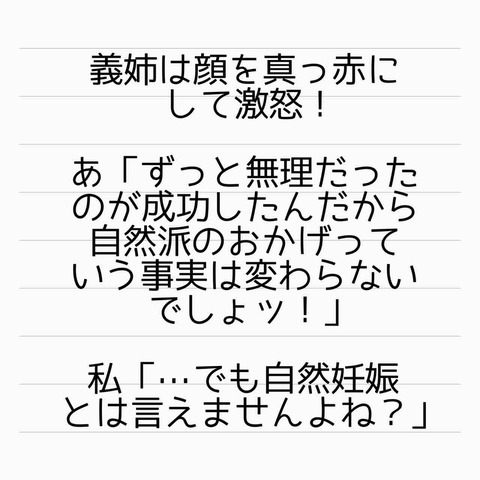 義姉は顔を真っ赤に
して激怒！
あ「ずっと無理だった
のが成功したんだから
自然派のおかげって
いう事実は変わらない
でしょッ！」
私「…でも自然妊娠
とは言えませんよね？」